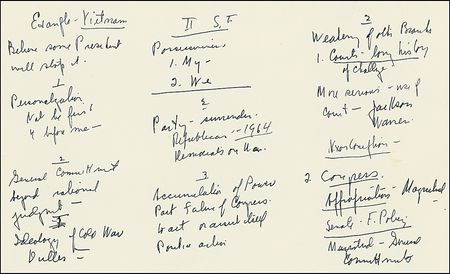 Example - Vietnam
Believe some President
will stop it.
1
Personalization
Not be first
4 before me -
2
General Commitment
beyond national
judgment -
3
Ideology of Cold War
Dulles -
II S.F.
Possessiveness
1. My -
2. We
2
Party - surrender.
Republicans - 1964
Democrats on War.
3
Accumulation of Power
Past Failure of Congress.
to act
Positive action
2
Weakening of other Branches
1. Courts - long history
of challenge
More serious - use of
Court - Jackson
Warren.
Nixon
2. Congress.
Appropriations - Magnitude
Senate - F. Policy
Magnitude - General
Commitments